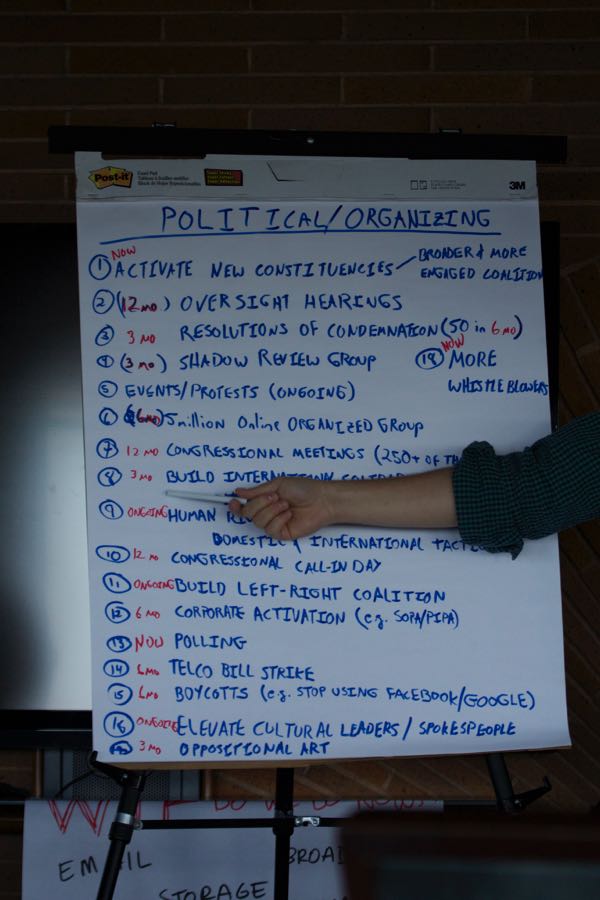 Post-it
Easel Pad
Super Sticky
3M
POLITICAL/ORGANIZING
NOW
1 ACTIVATE NEW CONSTITUENCIES
BROADER & MORE
ENGAGED COALITION
2 (12 MO) OVERSIGHT HEARINGS
3 3 MO RESOLUTIONS OF CONDEMNATION (50 in 6 MO)
4 (3 MO) SHADOW REVIEW GROUP
NOW
18 MORE
WHISTLEBLOWERS
5 EVENTS/PROTESTS (ONGOING)
6 (6 MO) 5 million Online ORGANIZED GROUP
7 12 MO CONGRESSIONAL MEETINGS (250+ OF
8 3 MO BUILD INTERNATIONAL
9 ONGOING HUMAN
DOMESTIC & INTERNATIONAL
10 12 MO CONGRESSIONAL CALL-IN DAY
11 ONGOING BUILD LEFT-RIGHT COALITION
12 6 MO CORPORATE ACTIVATION (e.g. SOPA/PIPA)
13 NOW POLLING
14 6 MO TELCO BILL STRIKE
15 6 MO BOYCOTTS (e.g. STOP USING FACEBOOK/GOOGLE)
16 ONGOING ELEVATE CULTURAL LEADERS / SPOKESPEOPLE
3 MO OPPOSITIONAL ART
DO WE DO NOW?
EMAIL
STORAGE